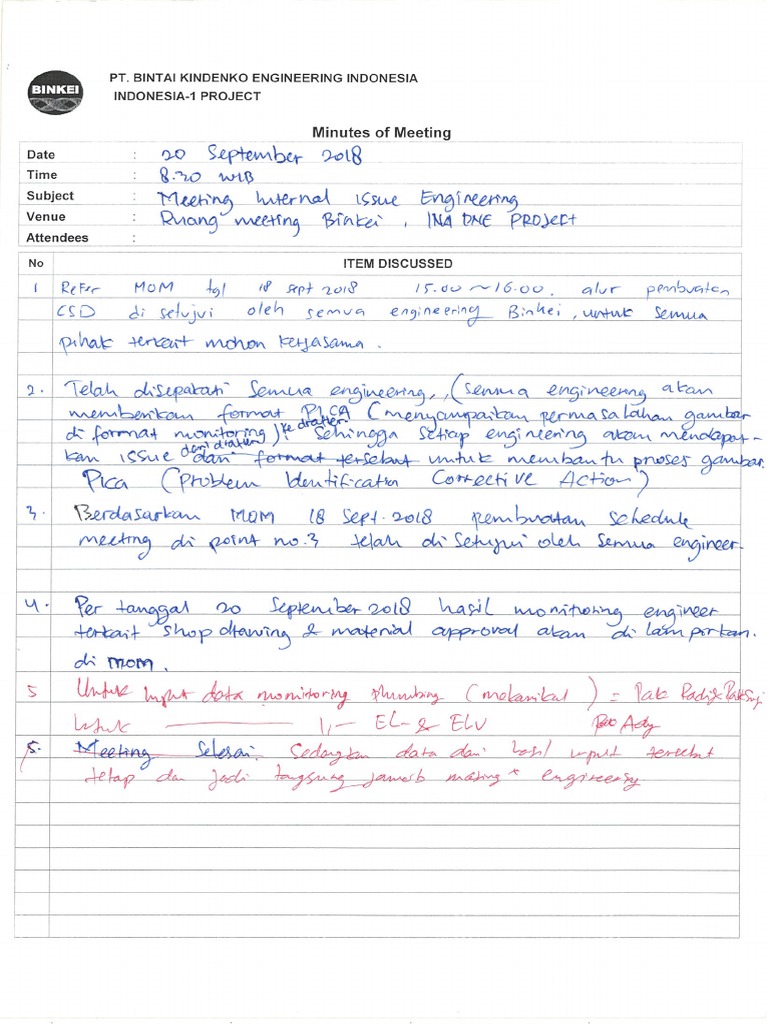 BINKEI
PT. BINTAI KINDENKO ENGINEERING INDONESIA
INDONESIA-1 PROJECT
Minutes of Meeting
Date : 20 September 2018
Time : 8.30 WIB
Subject : Meeting Internal issue Engineering
Venue : Ruang meeting Binkei, INA ONE PROJECT
Attendees :
No ITEM DISCUSSED
1 Refer MOM tgl 18 sept 2018 15.00 ~ 16.00. alur pembuatan
CSD di setujui oleh semua engineering Binkei, untuk semua
pihak terkait mohon kerjasama.
2. Telah disepakati semua engineering, (semua engineering akan
memberikan format PICA (menyampaikan permasalahan gambar
di format monitoring) ke drafter sehingga setiap engineering akan mendapat-
kan issue dari drafter dari format tersebut untuk membantu proses gambar.
Pica (Problem Identification Corrective Action)
3. Berdasarkan MOM 18 Sept. 2018 pembuatan schedule
meeting di point no.3 telah di setujui oleh semua engineer.
4. Per tanggal 20 September 2018 hasil monitoring engineer
terkait shop drawing & material approval akan di lampirkan.
di MOM.
5 Untuk input data monitoring plumbing (mekanikal) = Pak Radi & Pak
Untuk 1, - EL & ELV Ady
5. Meeting selesai. Sedangkan data dari hasil input tersebut
tetap dan jadi tanggung jawab masing" engineering